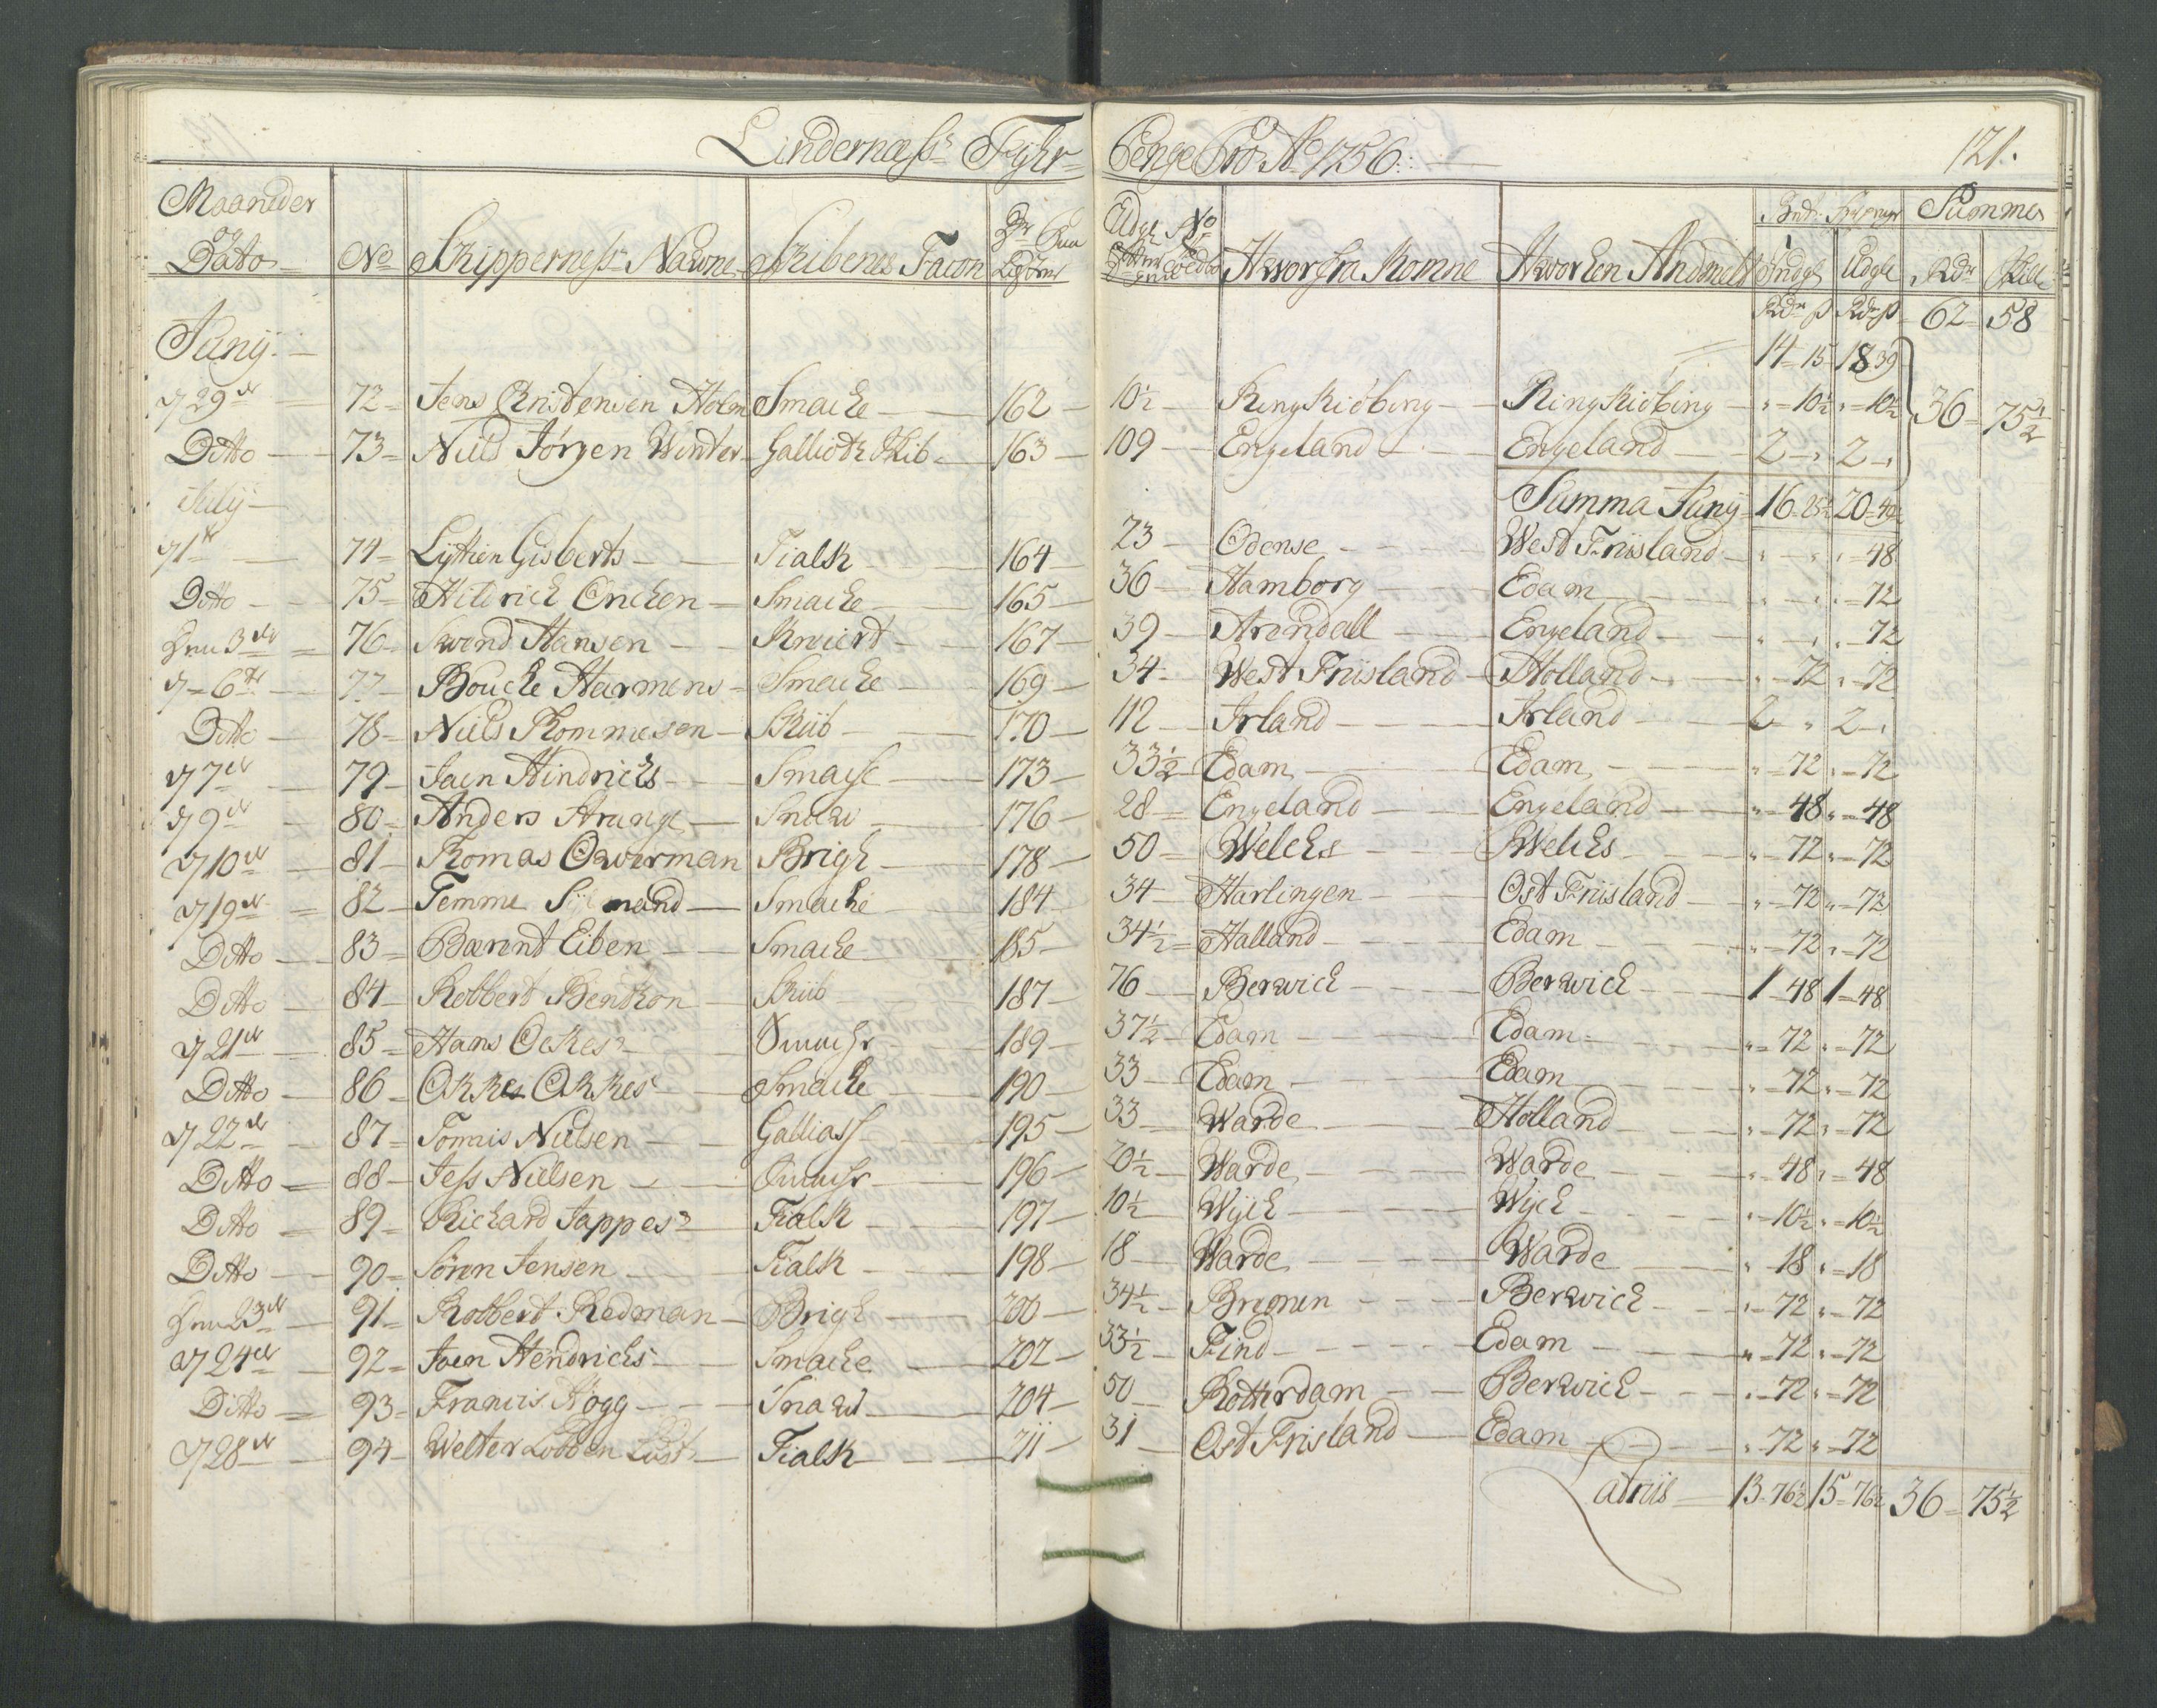 Lindernæss Fyhr Penge Pro Ao 1756. 121.
Maaneder og Dato No Skippernes Nawne Skibenes Facon Hworfra Komne Hworhen Andmelt Indg Udg Summer Rdr Skill
Rdr s Rdr s 62 58
Junÿ 14 15 18 39
29de 72 Jens Christensen Holm Smacke 162 10½ RingKiøbing RingKiøbing " 10½ " 10½ 36 75½
Ditto 73 Nills Jørgen Winter Galliot Skib 163 109 Engeland Engeland 2 " 2 "
Julÿ Summa Junÿ 16 25½ 20
1te 74 Gisberts Tialk 164 23 Odense West Friisland " " " 48
Ditto 75 Hillrich Onchen Smacke 165 36 Hamborg Edam " " " 72
3de 76 Swend Hansen Kreiert 167 39 Arendall Engeland " " " 72
6te 77 Boucke Harmens Smacke 169 34 West Friisland Holland " 72 " 72
Ditto 78 Niels Thommesen Skiib 170 112 Irland Irland 2 " 2 "
7de 79 Jaen Hindrichs Smacke 173 33½ Edam Edam " 72 " 72
9de 80 Anders Strange Snaw 176 28 Engeland Engeland " 48 " 48
10de 81 Thomas Owerman Brigh 178 50 Welchs Welchs " 72 " 72
19de 82 Temme Smacke 184 34 Harlingen Ost Friisland " 72 " 72
Ditto 83 Barent Eiben Smacke 185 34½ Halland Edam " 72 " 72
Ditto 84 Robbert Benthon Skiib 187 76 Berwich Berwich 1 48 1 48
21de 85 Hans Ockes Smacke 189 37½ Edam Edam " 72 " 72
Ditto 86 Okkes Okkes Smacke 190 33 Edam Edam " 72 " 72
22de 87 Tonnis Nielsen Galliass 195 33 Warde Holland " 72 " 72
Ditto 88 Jess Nielsen Smacke 196 20½ Warde Warde " 48 " 48
Ditto 89 Richard Jappes Tialk 197 10½ Wÿch Wÿch " 10½ " 10½
Ditto 90 Søren Jensen Tialk 198 18 Warde Warde " 18 " 18
23de 91 Robbert Redman Brigh 200 34½ Bremen Berwich " 72 " 72
24de 92 Jaen Hendrichs Smacke 202 33½ Find Edam " 72 " 72
Ditto 93 Francis Hogg Snaw 204 50 Rotterdam Berwich " 72 " 72
28de 94 Welter Lobben Tialk 211 31 Ost Friisland Edam " 72 " 72
Latriis 13 76½ 15 76½ 36 75½